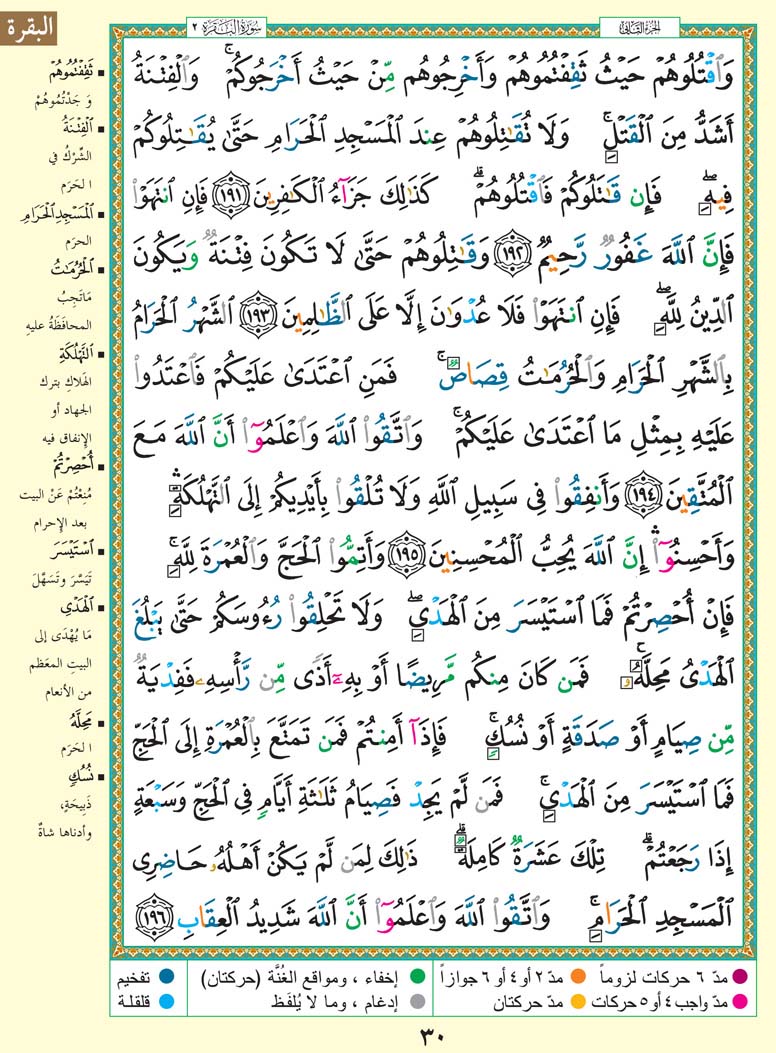 البقرة
سُورَةُ البَقَرَة ٢
الجُزءُ الثَّانِي
وَٱقْتُلُوهُمْ حَيْثُ ثَقِفْتُمُوهُمْ وَأَخْرِجُوهُم مِّنْ حَيْثُ أَخْرَجُوكُمْ ۚ وَٱلْفِتْنَةُ
أَشَدُّ مِنَ ٱلْقَتْلِ ۚ وَلَا تُقَٰتِلُوهُمْ عِندَ ٱلْمَسْجِدِ ٱلْحَرَامِ حَتَّىٰ يُقَٰتِلُوكُمْ
فِيهِ ۖ فَإِن قَٰتَلُوكُمْ فَٱقْتُلُوهُمْ ۗ كَذَٰلِكَ جَزَآءُ ٱلْكَٰفِرِينَ ١٩١ فَإِنِ ٱنتَهَوْا۟
فَإِنَّ ٱللَّهَ غَفُورٌ رَّحِيمٌ ١٩٢ وَقَٰتِلُوهُمْ حَتَّىٰ لَا تَكُونَ فِتْنَةٌ وَيَكُونَ
ٱلدِّينُ لِلَّهِ ۖ فَإِنِ ٱنتَهَوْا۟ فَلَا عُدْوَٰنَ إِلَّا عَلَى ٱلظَّٰلِمِينَ ١٩٣ ٱلشَّهْرُ ٱلْحَرَامُ
بِٱلشَّهْرِ ٱلْحَرَامِ وَٱلْحُرُمَٰتُ قِصَاصٌ ۚ فَمَنِ ٱعْتَدَىٰ عَلَيْكُمْ فَٱعْتَدُوا۟
عَلَيْهِ بِمِثْلِ مَا ٱعْتَدَىٰ عَلَيْكُمْ ۚ وَٱتَّقُوا۟ ٱللَّهَ وَٱعْلَمُوٓا۟ أَنَّ ٱللَّهَ مَعَ
ٱلْمُتَّقِينَ ١٩٤ وَأَنفِقُوا۟ فِى سَبِيلِ ٱللَّهِ وَلَا تُلْقُوا۟ بِأَيْدِيكُمْ إِلَى ٱلتَّهْلُكَةِ ۛ
وَأَحْسِنُوٓا۟ ۛ إِنَّ ٱللَّهَ يُحِبُّ ٱلْمُحْسِنِينَ ١٩٥ وَأَتِمُّوا۟ ٱلْحَجَّ وَٱلْعُمْرَةَ لِلَّهِ ۚ
فَإِنْ أُحْصِرْتُمْ فَمَا ٱسْتَيْسَرَ مِنَ ٱلْهَدْىِ ۖ وَلَا تَحْلِقُوا۟ رُءُوسَكُمْ حَتَّىٰ يَبْلُغَ
ٱلْهَدْىُ مَحِلَّهُۥ ۚ فَمَن كَانَ مِنكُم مَّرِيضًا أَوْ بِهِۦٓ أَذًى مِّن رَّأْسِهِۦ فَفِدْيَةٌ
مِّن صِيَامٍ أَوْ صَدَقَةٍ أَوْ نُسُكٍ ۚ فَإِذَآ أَمِنتُمْ فَمَن تَمَتَّعَ بِٱلْعُمْرَةِ إِلَى ٱلْحَجِّ
فَمَا ٱسْتَيْسَرَ مِنَ ٱلْهَدْىِ ۚ فَمَن لَّمْ يَجِدْ فَصِيَامُ ثَلَٰثَةِ أَيَّامٍ فِى ٱلْحَجِّ وَسَبْعَةٍ
إِذَا رَجَعْتُمْ ۗ تِلْكَ عَشَرَةٌ كَامِلَةٌ ۗ ذَٰلِكَ لِمَن لَّمْ يَكُنْ أَهْلُهُۥ حَاضِرِى
ٱلْمَسْجِدِ ٱلْحَرَامِ ۚ وَٱتَّقُوا۟ ٱللَّهَ وَٱعْلَمُوٓا۟ أَنَّ ٱللَّهَ شَدِيدُ ٱلْعِقَابِ ١٩٦
ثَقِفْتُمُوهُمْ
وَجَدْتُمُوهُمْ
ٱلْفِتْنَةُ
الشِّرْكُ في
الحَرَم
ٱلْمَسْجِدِ ٱلْحَرَامِ
الحَرَم
ٱلْحُرُمَٰتُ
مَا تَجِبُ
المحافَظَةُ عليهِ
ٱلتَّهْلُكَةِ
الهَلاكِ بترك
الجهاد أو
الإنفاق فيه
أُحْصِرْتُمْ
مُنِعْتُمْ عَنْ البيت
بعد الإحرام
ٱسْتَيْسَرَ
تَيَسَّرَ وتَسَهَّلَ
ٱلْهَدْيِ
مَا يُهْدَى إلى
البيتِ المعَظم
من الأنعام
مَحِلَّهُ
الحَرَم
نُسُكٍ
ذَبِيحَةٍ،
وأدناها شاةٌ
مدّ ٦ حركات لزوماً
مدّ ٢ أو ٤ أو ٦ جوازاً
إخفاء ، ومواقع الغُنَّة (حركتان)
تفخيم
مدّ واجب ٤ أو ٥ حركات
مدّ حركتان
إدغام ، وما لا يُلفَظ
قلقلة
٣٠